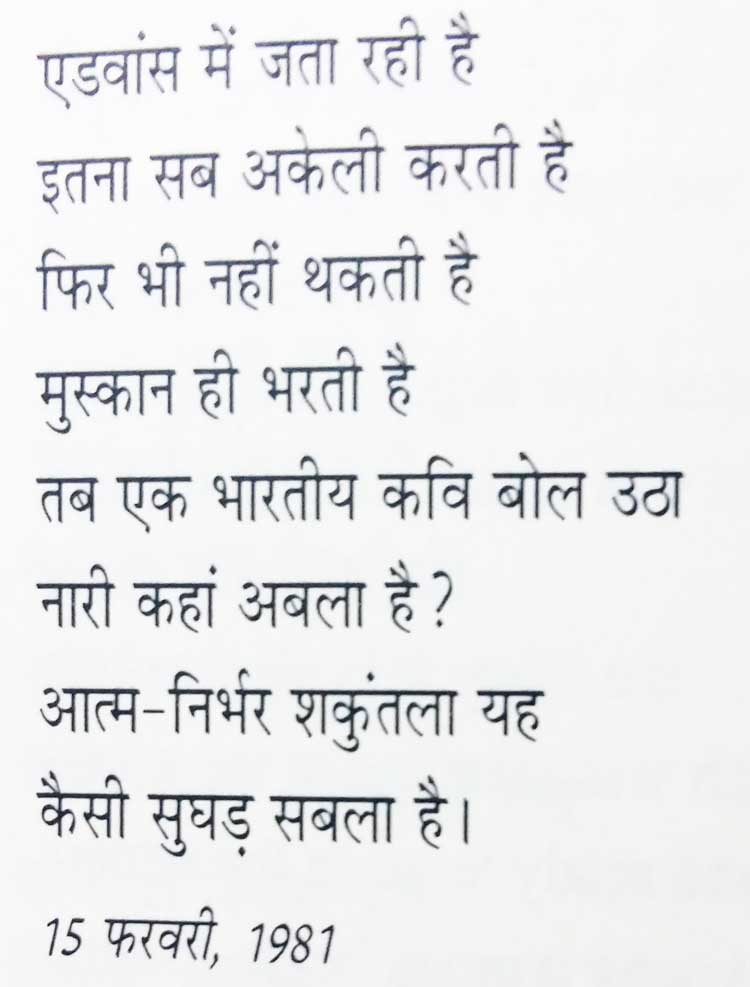 एडवांस में जता रही है
इतना सब अकेली करती है
फिर भी नहीं थकती है
मुस्कान ही भरती है
तब एक भारतीय कवि बोल उठा
नारी कहां अबला है?
आत्म-निर्भर शकुंतला यह
कैसी सुघड़ सबला है।
15 फरवरी, 1981